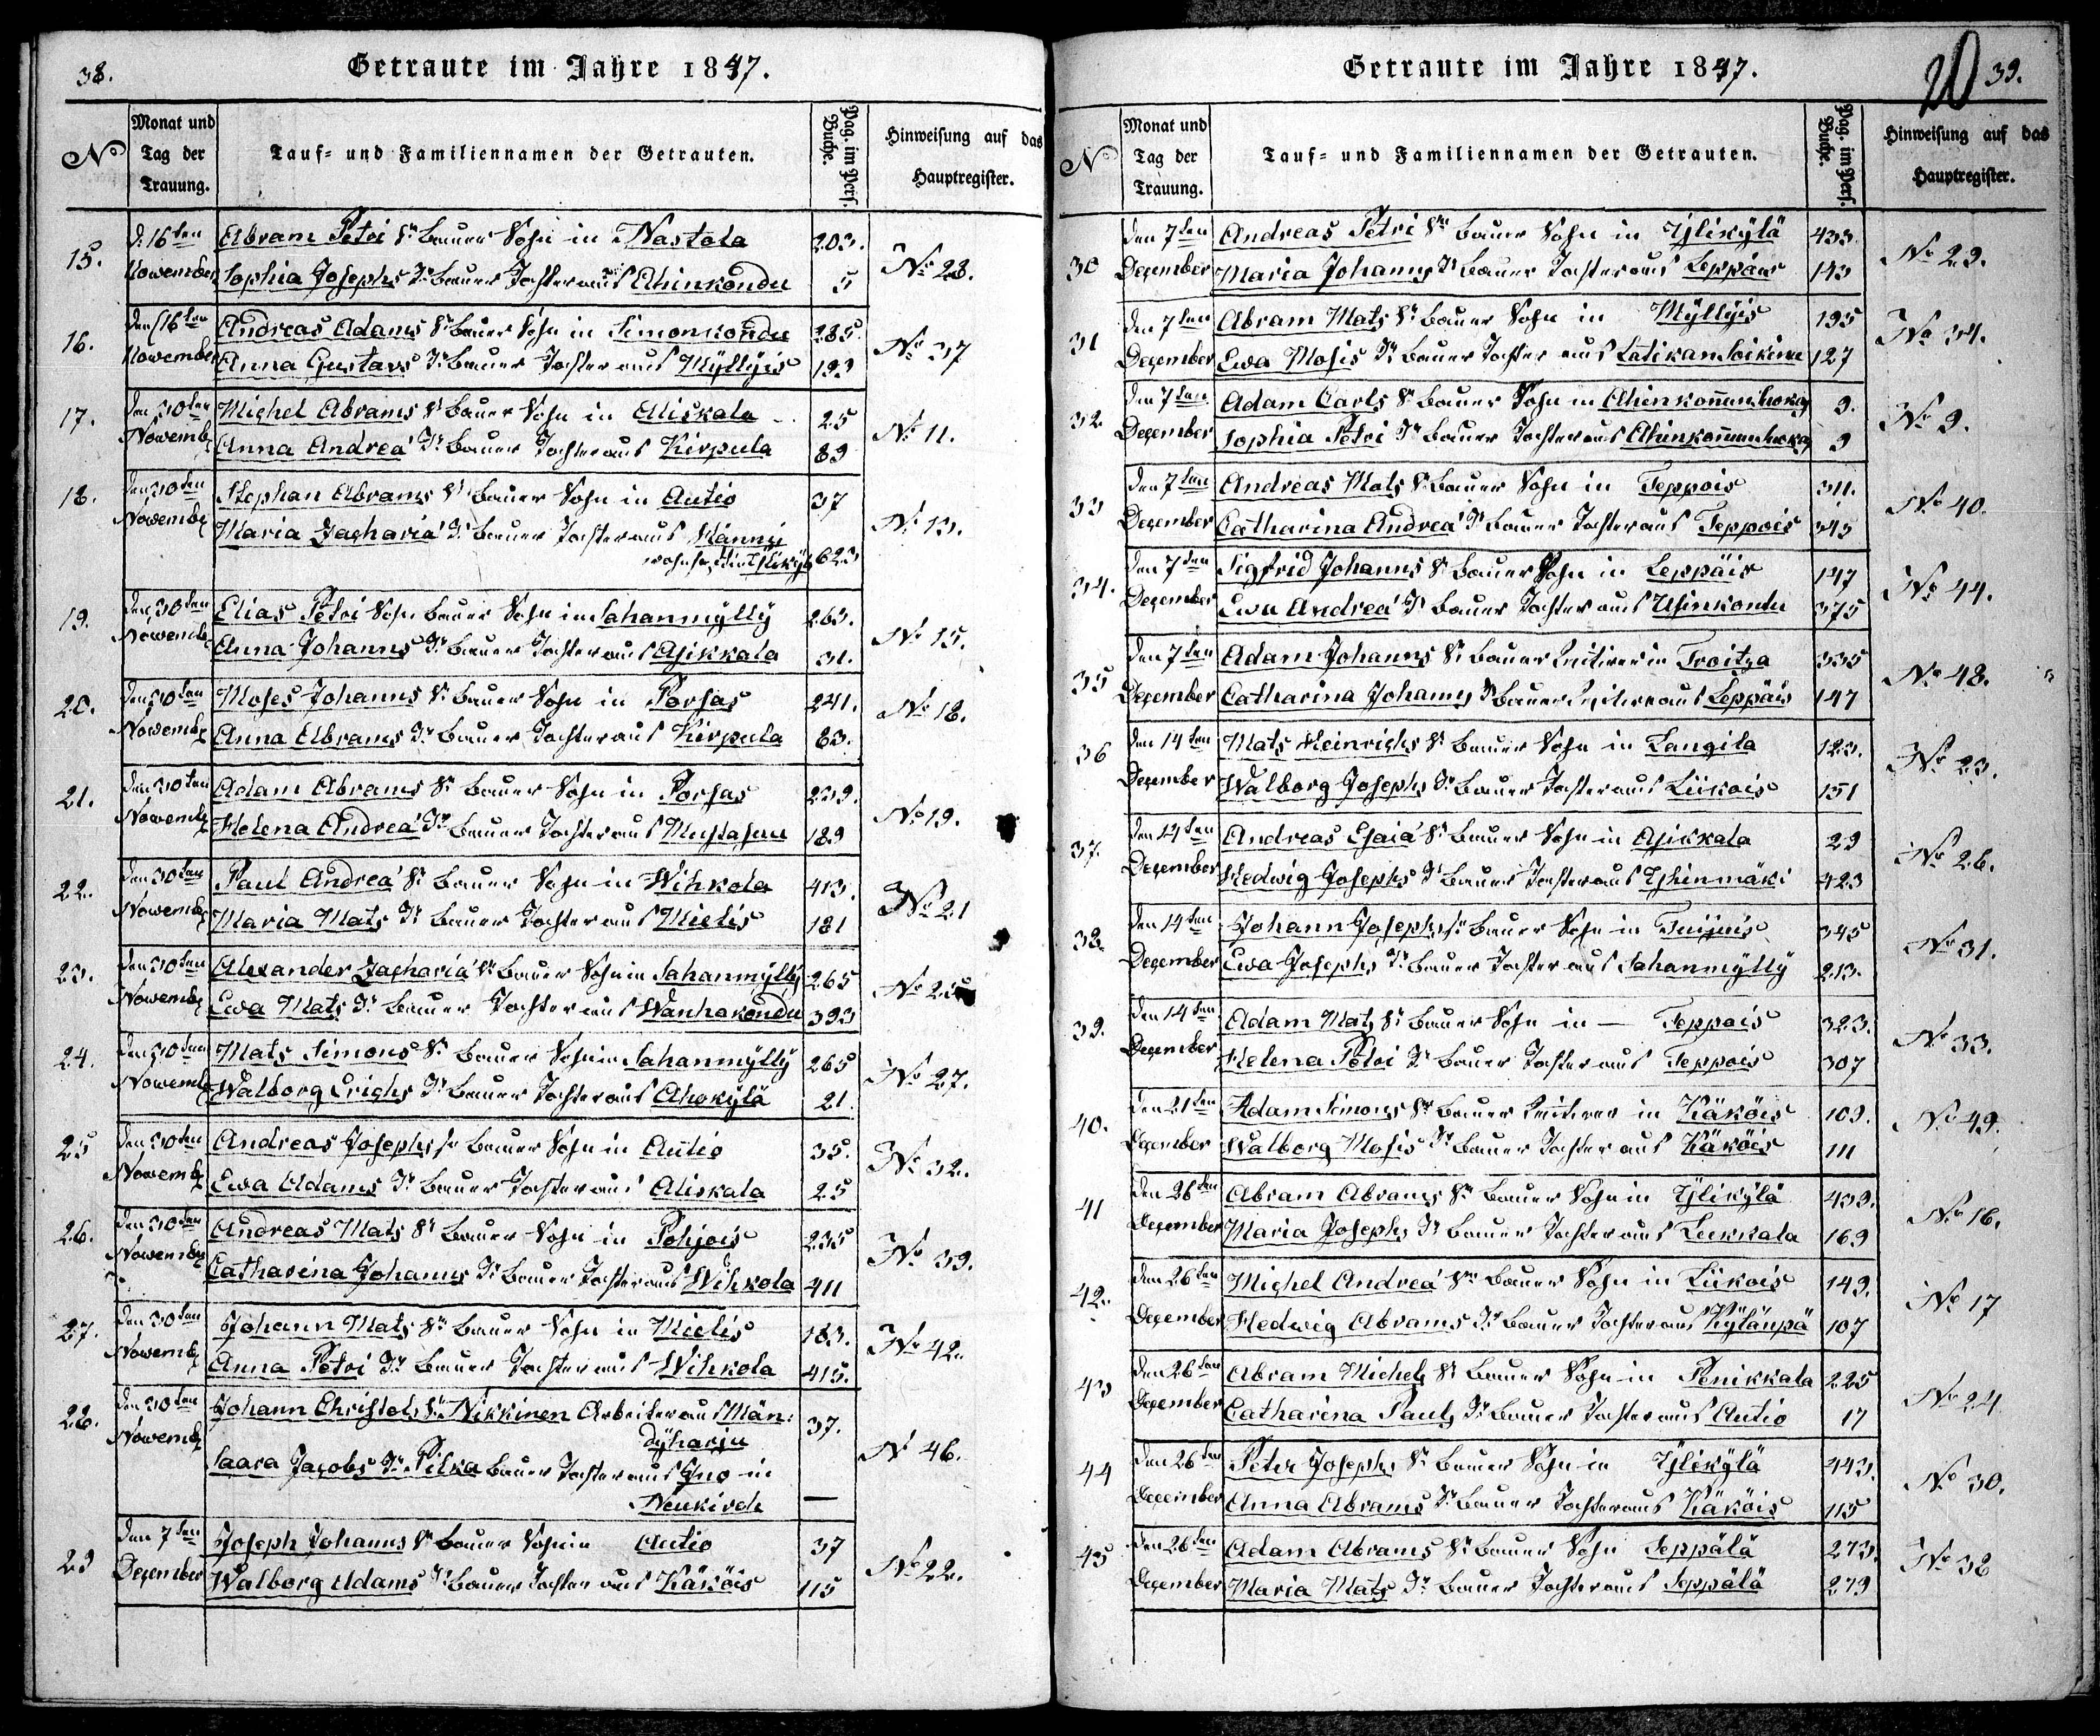 38.
Getraute im Jahre 1847.
N°
Monat und Tag der Trauung.
Tauf- und Familiennamen der Getrauten.
Pag. im Pers. Buche.
Hinweisung auf das Hauptregister.
15. d. 16ten Abram Petri Sn Bauer Sohn in Nastola 203. No 28.
November Sophia Josephs Tr Bauer Tochter aus Ahinkondu 5
16. den 16ten Andreas Adams Sn Bauer Sohn in Simonkondu 285. No 37
November Anna Gustavs Tr Bauer Tochter aus Myllyis 193
17. den 30ten Michel Abrams Sn Bauer Sohn in Aliskala 25 No 11.
Novemb Anna Andreä Tr Bauer Tochter aus Kirpula 89
18. den 30ten Stephan Abrams Sn Bauer Sohn in Autio 37 No 13.
Novemb Maria Zachariä Tr Bauer Tochter aus Männi
wohnh. in Ylikylä 623
19. den 30ten Elias Petri Sohn Bauer Sohn in Sahanmylly 263. No 15.
Novemb Anna Johanns Tr Bauer Tochter aus Ajikkala 31.
20. den 30ten Moses Johanns Sn Bauer Sohn in Porsas 241. No 18.
Novemb Anna Abrams Tr Bauer Tochter aus Kirpula 83.
21. den 30ten Adam Abrams Sn Bauer Sohn in Porsas 239. No 19.
Novemb Helena Andreä Tr Bauer Tochter aus Mustasuu 189
22. den 30ten Paul Andreä Sn Bauer Sohn in Wihkola 413. No 21
Novemb Maria Mats Tr Bauer Tochter aus Mielis 181
23. den 30ten Alexander Zachariä Sn Bauer Sohn in Sahanmylly 265 No 25
Novemb Ewa Mats Tr Bauer Tochter aus Wanhakondu 393
24. den 30ten Mats Simons Sn Bauer Sohn in Sahanmylly 265 No 27.
Novemb Walborg Erichs Tr Bauer Tochter aus Ahokylä 21
25 den 30ten Andreas Josephs Sn Bauer Sohn in Autio 35. No 32.
Novemb Ewa Adams Tr Bauer Tochter aus Aliskala 25
26. den 30ten Andreas Mats Sn Bauer Sohn in Pohjois 235 No 39.
Novemb Catharina Johanns Tr Bauer Tochter aus Wihkola 411
27. den 30ten Johann Mats Sn Bauer Sohn in Mielis 183. No 42.
Novemb Anna Petri Tr Bauer Tochter aus Wihkola 415.
28. den 30ten Johann Christofs Sn Nikkinen Arbeiter aus Män- 37. N 46.
Novemb dyharju
Saara Jacobs Tr Pilka Bauer Tochter aus Ino in
Neukirch —
29 den 7ten Joseph Johanns Sn Bauer Sohn in Autio 37 No 22.
December Walborg Adams Tr Bauer Tochter aus Käköis 115
Getraute im Jahre 1847.
20 39.
N°
Monat und Tag der Trauung.
Tauf- und Familiennamen der Getrauten.
Pag. im Pers. Buche.
Hinweisung auf das Hauptregister.
30 den 7ten Andreas Petri Sn Bauer Sohn in Ylikylä 433. No 29.
December Maria Johanns Tr Bauer Tochter aus Leppäis 143
31 den 7ten Abram Mats Sn Bauer Sohn in Myllyis 195 No 34.
December Ewa Mosis Tr Bauer Tochter aus 127
32. den 7ten Adam Carls Sn Bauer Sohn in 9. No 9.
December Sophia Petri Tr Bauer Tochter aus 9
33 den 7ten Andreas Mats Sn Bauer Sohn in Teppois 311. No 40.
December Catharina Andreä Tr Bauer Tochter aus Teppois 345
34. den 7ten Sigfrid Johanns Sn Bauer Sohn in Leppäis 147 No 44.
December Ewa Andreä Tr Bauer Tochter aus Usinkondu 375
35 den 7ten Adam Johanns Sn Bauer Wittwer in Troitza 335 No 48.
December Catharina Johanns Tr Bauer Wittwe aus Leppäis 147
36 den 14ten Mats Heinrichs Sn Bauer Sohn in Langila 123. No 23.
December Walborg Josephs Tr Bauer Tochter aus Liikois 151
37. den 14ten Andreas Esaiä Sn Bauer Sohn in Ajikkala 29 No 26.
December Hedwig Josephs Tr Bauer Tochter aus Yhinmäki 423
38. den 14ten Johann Josephs Sn Bauer Sohn in Tuijuis 345 No 31.
December Ewa Josephs Tr Bauer Tochter aus Sahanmylly 213.
39. den 14ten Adam Mats Sn Bauer Sohn in — Teppois 323. No 33.
December Helena Petri Tr Bauer Tochter aus Teppois 307
40. den 21ten Adam Simons Sn Bauer Wittwer in Käköis 109. No 49.
December Walborg Mosis Tr Bauer Tochter aus Käköis 111
41 den 26ten Abram Abrams Sn Bauer Sohn in Ylikylä 439. No 16.
December Maria Josephs Tr Bauer Tochter aus Luukkala 169
42. den 26ten Michel Andreä Sn Bauer Sohn in Liikois 149. No 17
December Hedwig Abrams Tr Bauer Tochter aus Kylänpä 107
43 den 26ten Abram Michels Sn Bauer Sohn in Penikkala 225 No 24
December Catharina Pauls Tr Bauer Tochter aus Autio 17
44 den 26ten Peter Josephs Sn Bauer Sohn in Ylikylä 443. No 30.
December Anna Abrams Tr Bauer Tochter aus Käköis 115
45 den 26ten Adam Abrams Sn Bauer Sohn Seppälä 273. No 38
December Maria Mats Tr Bauer Tochter aus Seppälä 279